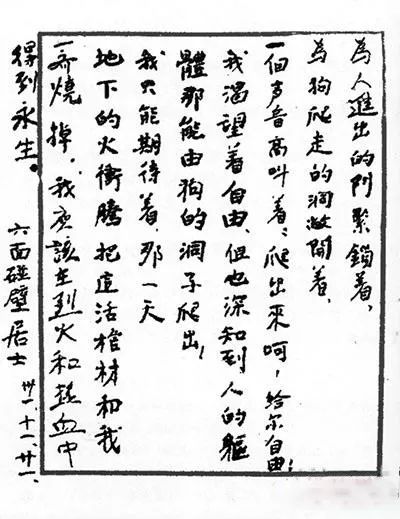 為人進出的门緊鎖着，
為狗爬走的洞敞開着，
一個声音高叫着：爬出來呵，給尔自由！
我渴望着自由，但也深知到人的軀
體那能由狗的洞子爬出！
我只能期待着，那一天
地下的火衝騰把這活棺材和我
一齊燒掉，我应該在烈火和热血中
得到永生。
六面碰壁居士 卅一、十一、廿一、